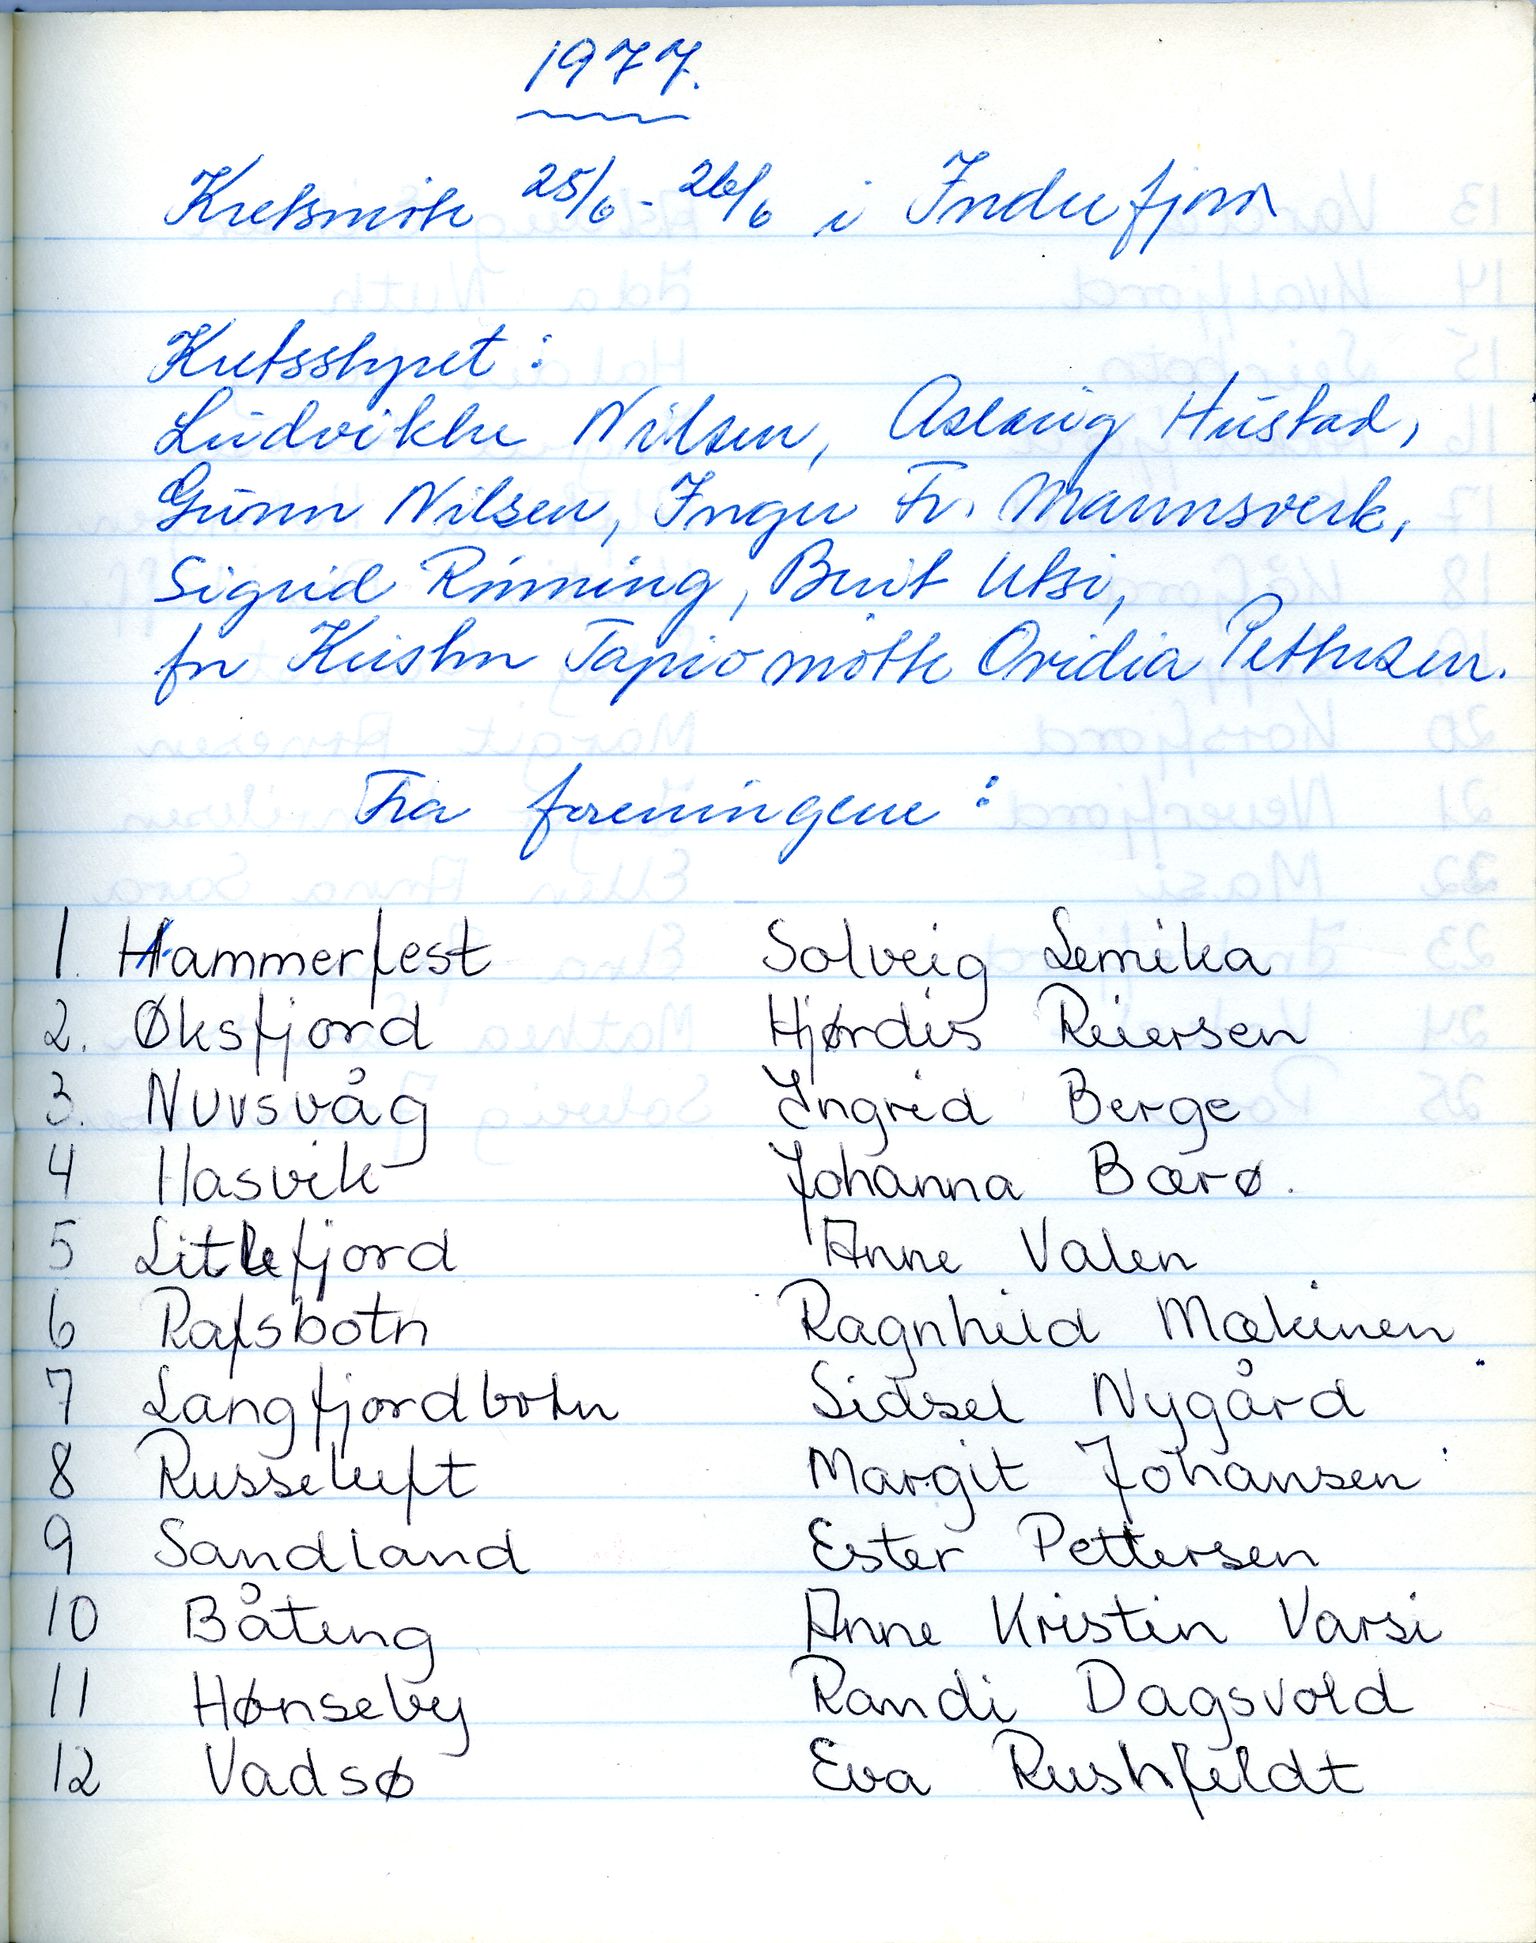 1977.
Kretsmøte 25/6 - 26/6 i Indrefjord
Kretsstyret:
Ludvikke Nilsen, Aslaug Hustad,
Gunn Nilsen, Inger Fr. Mannsverk,
Sigrid Rønning, Berit Utsi,
for Kirsten Tapio møtte Ovidia Pettersen.
Fra foreningene:
1. Hammerfest Solveig Lemika
2. Øksfjord Hjørdis Reiersen
3. Nuvsvåg Ingrid Berge
4 Hasvik Johanna Bærø.
5 Litlefjord Anne Valen
6 Rafsbotn Ragnhild Mækinen
7 Langfjordbotn Sidsel Nygård
8 Russeluft Margit Johansen
9 Sandland Ester Pettersen
10 Båteng Anne Kristin Varsi
11 Hønseby Randi Dagsvold
12 Vadsø Eva Rushfeldt